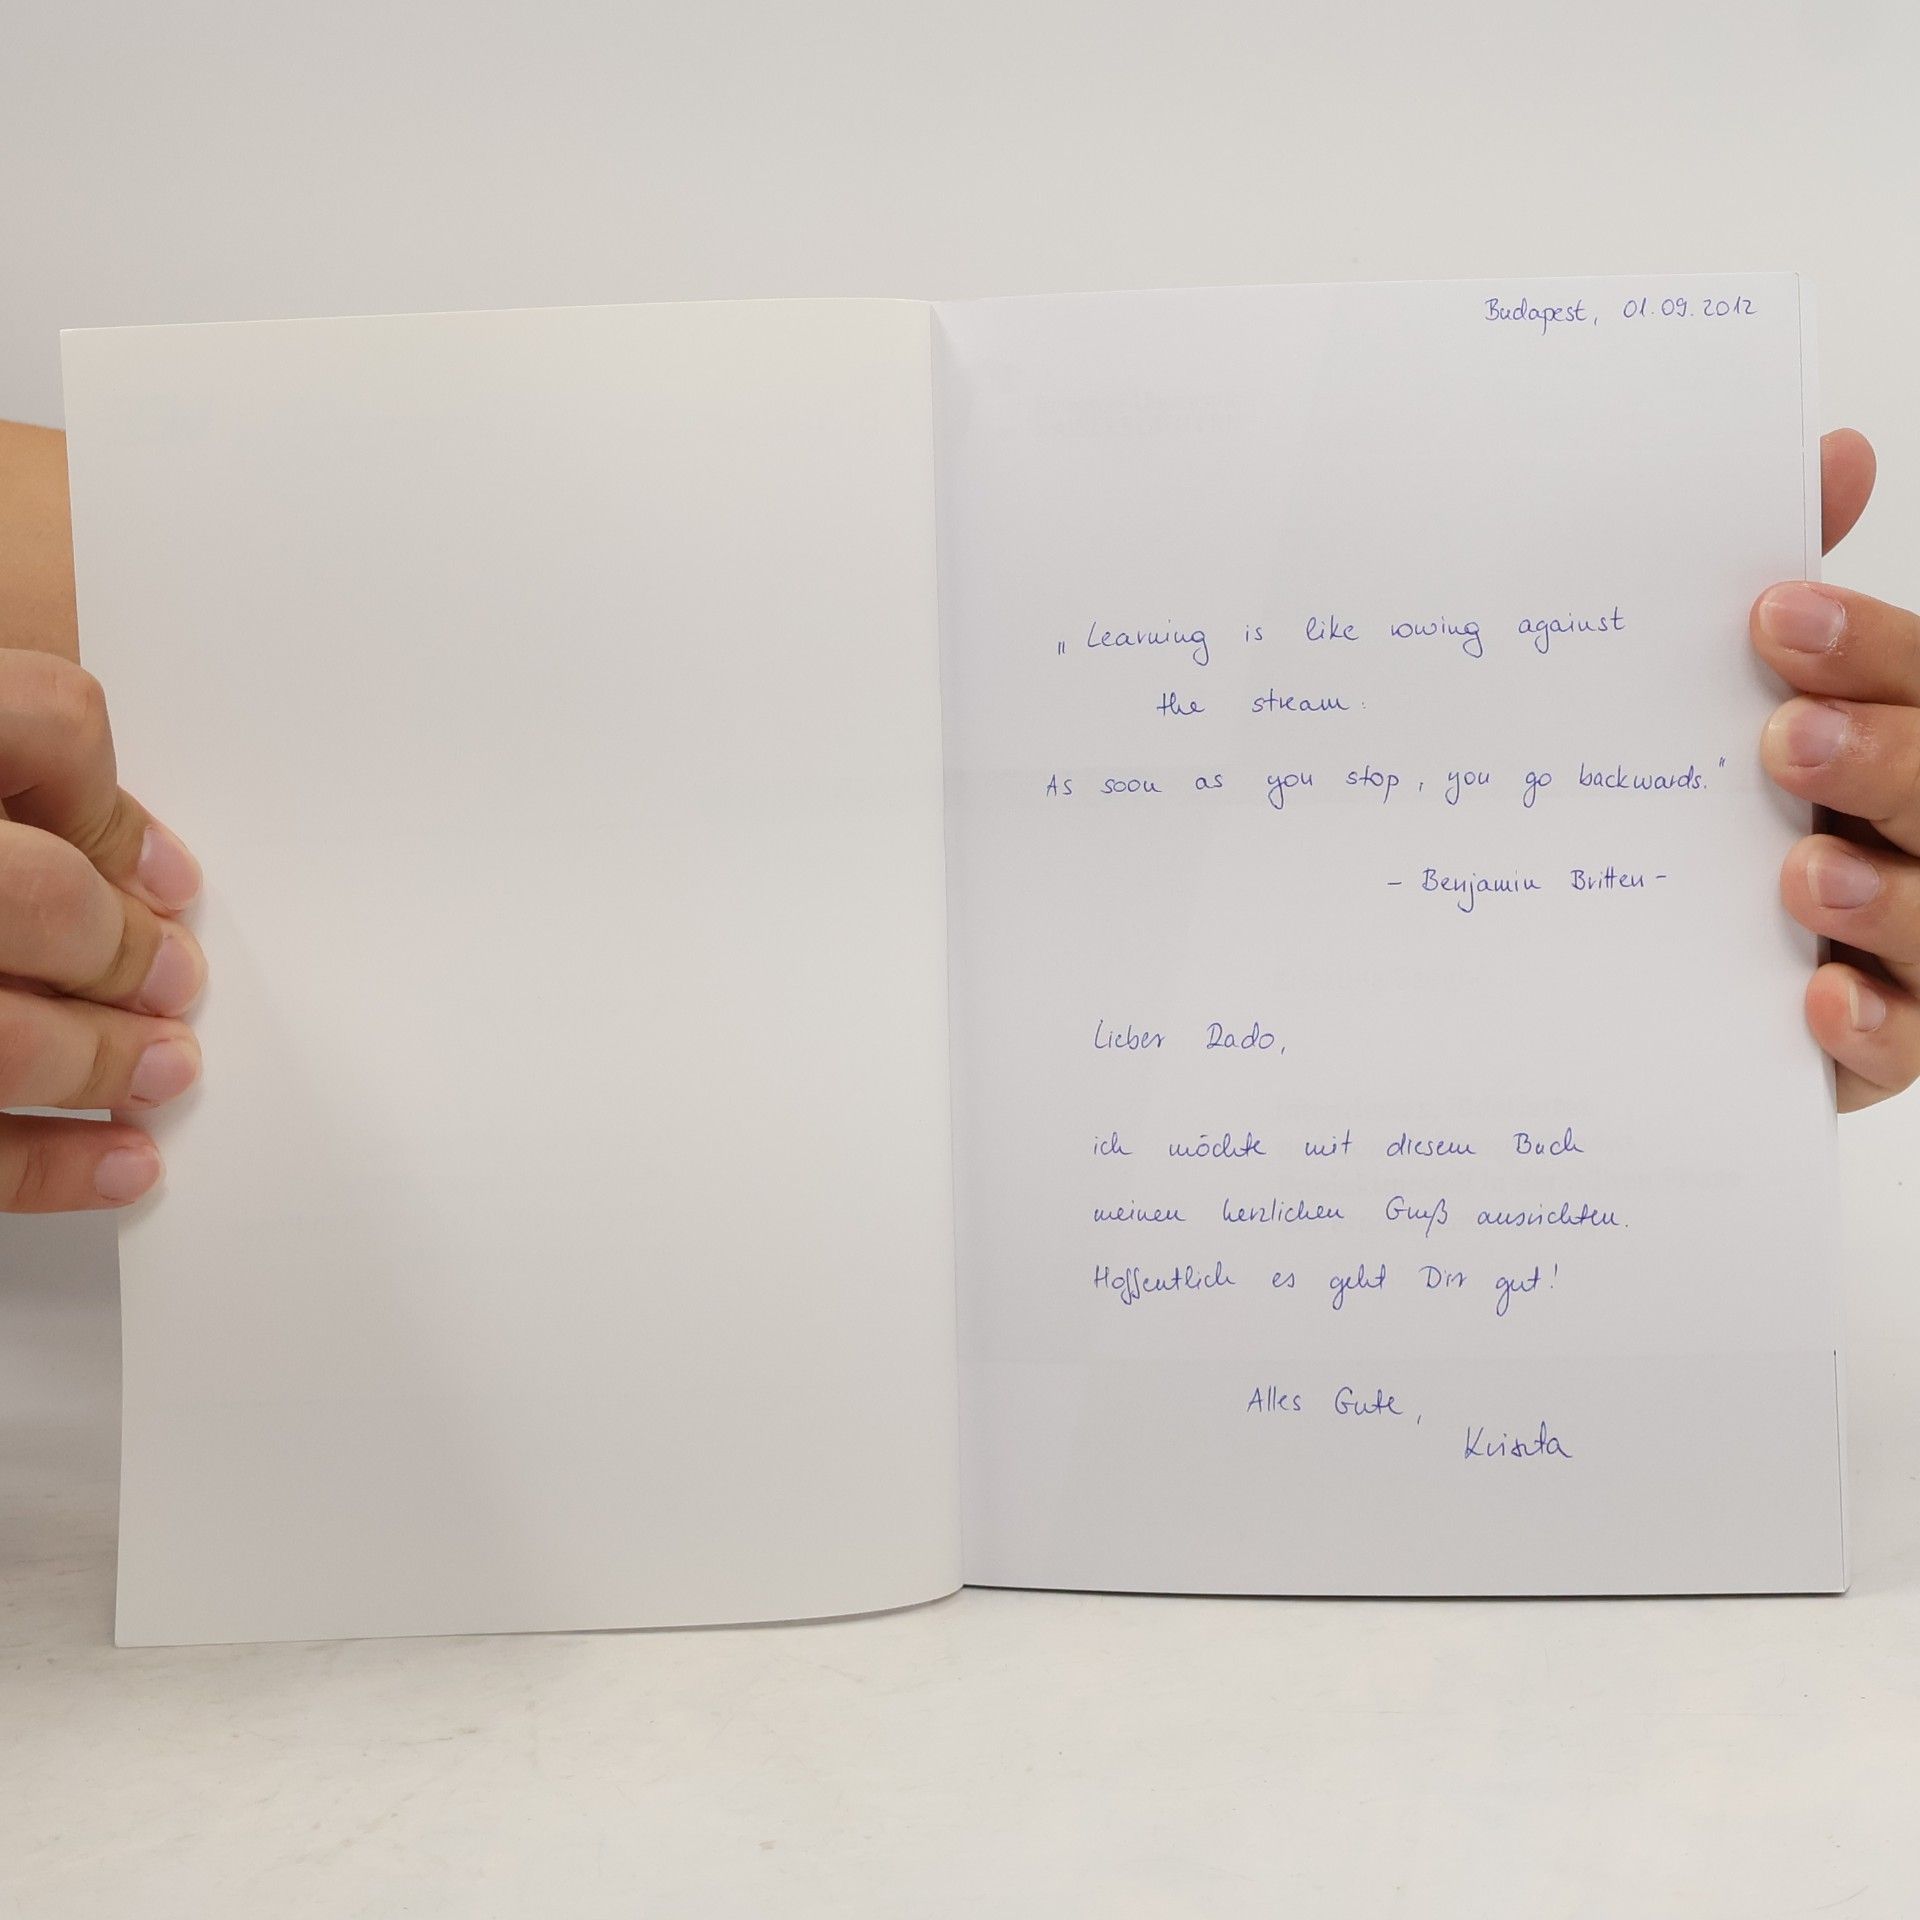 Budapest, 01.09.2012
„Learning is like rowing against
the stream:
As soon as you stop, you go backwards."
- Benjamin Britten -
Lieber Rado,
ich möchte mit diesem Buch
meinen herzlichen Gruß ausrichten.
Hoffentlich es geht Dir gut!
Alles Gute,
Kriszta